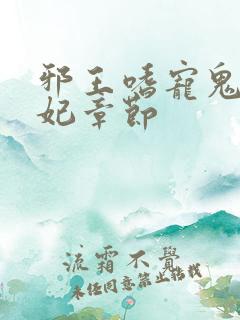 邪王嗜寵鬼
妃章節
流霜不覺
未經同意禁止搭載